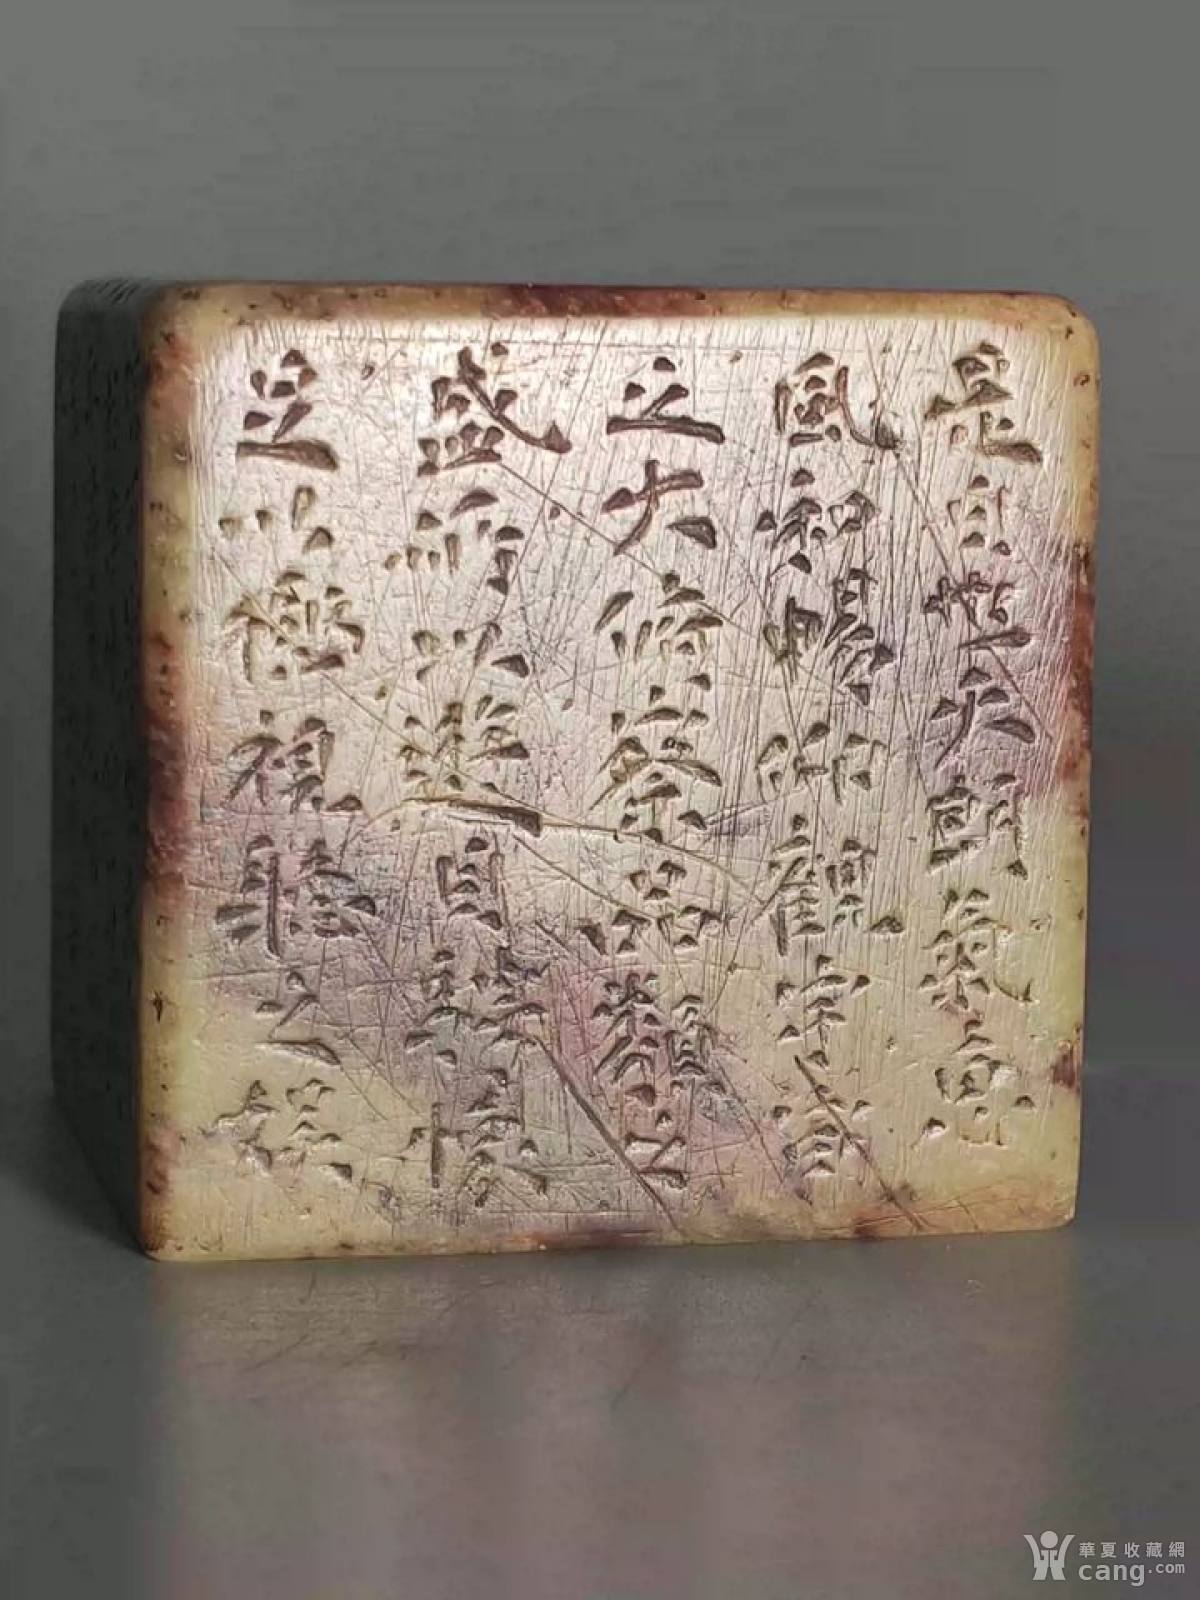 是日也天朗氣惠
風和暢仰觀宇宙
之大俯察品類之
盛所以遊目騁懷
足以極視聽之娛
華夏收藏網
cang.com